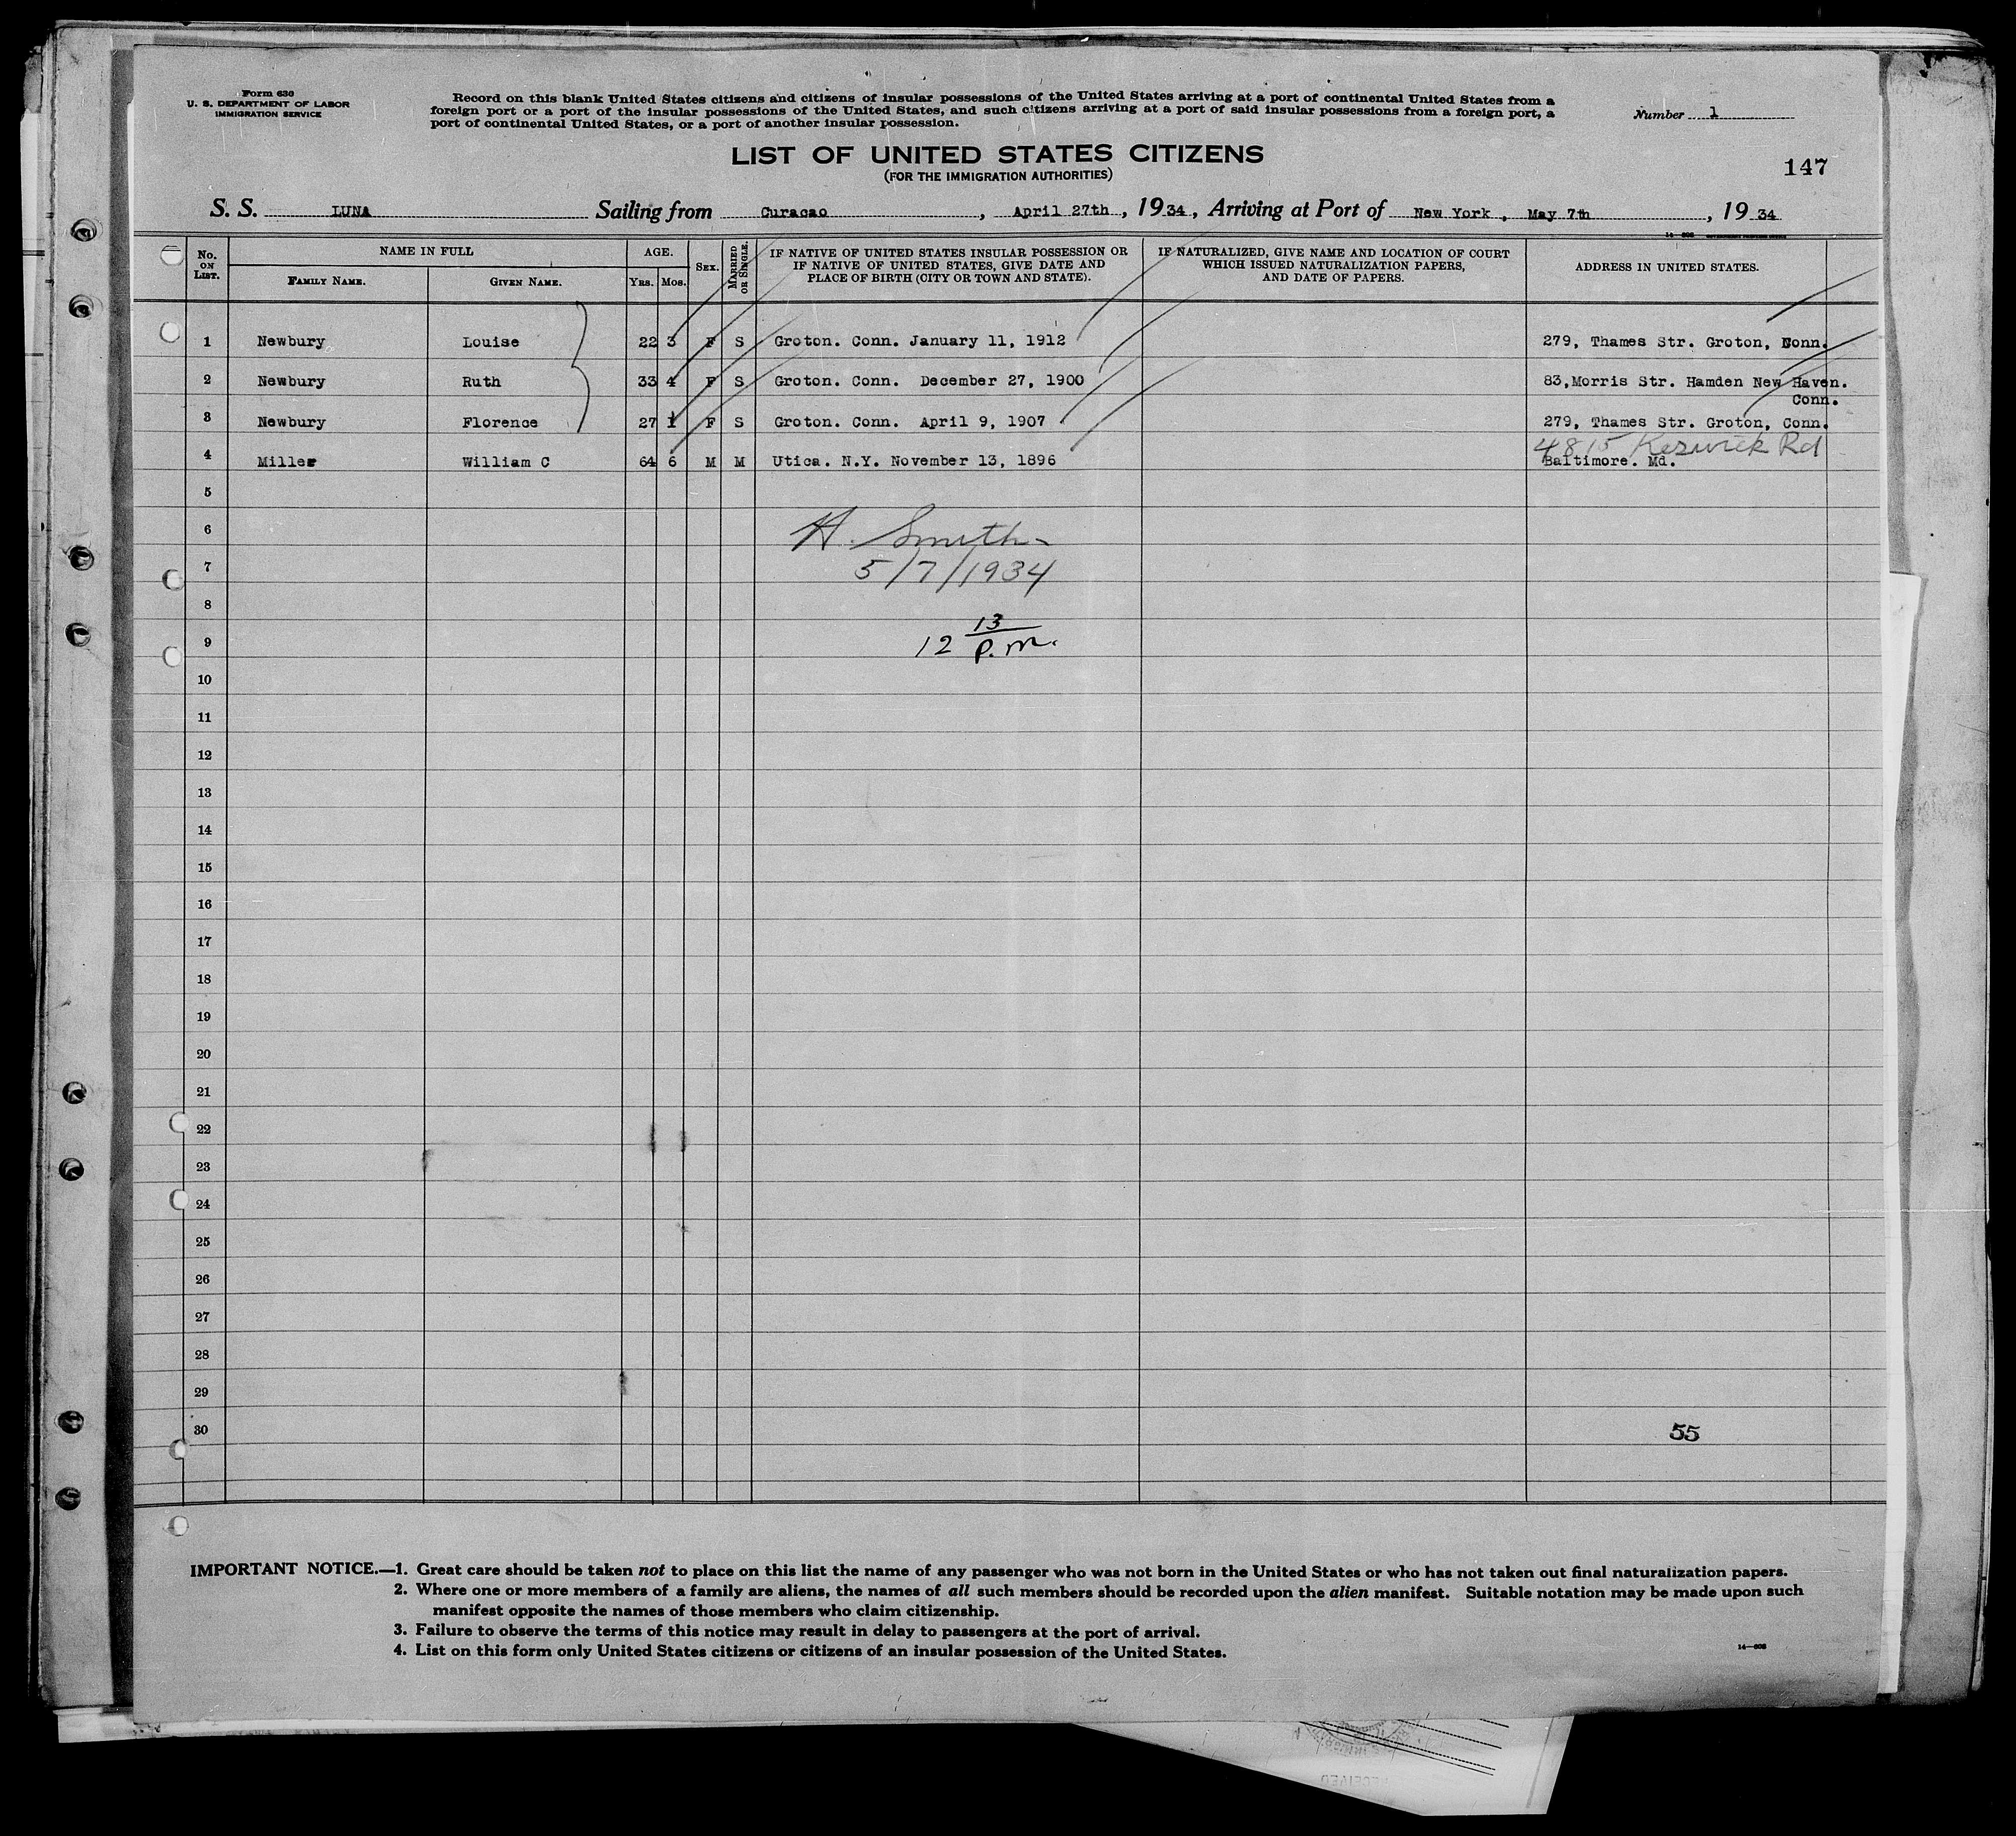 Form 630
U. S. DEPARTMENT OF LABOR
IMMIGRATION SERVICE
Record on this blank United States citizens and citizens of insular possessions of the United States arriving at a port of continental United States from a
foreign port or a port of the insular possessions of the United States, and such citizens arriving at a port of said insular possessions from a foreign port, a
port of continental United States, or a port of another insular possession.
Number 1
LIST OF UNITED STATES CITIZENS
(FOR THE IMMIGRATION AUTHORITIES)
147
S. S. LUNA Sailing from Curacao, April 27th, 1934, Arriving at Port of New York, May 7th, 1934
No. ON LIST. NAME IN FULL AGE. SEX. MARRIED OR SINGLE. IF NATIVE OF UNITED STATES INSULAR POSSESSION OR IF NATIVE OF UNITED STATES, GIVE DATE AND PLACE OF BIRTH (CITY OR TOWN AND STATE). IF NATURALIZED, GIVE NAME AND LOCATION OF COURT WHICH ISSUED NATURALIZATION PAPERS, AND DATE OF PAPERS. ADDRESS IN UNITED STATES.
FAMILY NAME. GIVEN NAME. YRS. MOS.
1 Newbury Louise 22 3 F S Groton. Conn. January 11, 1912 279, Thames Str. Groton, Conn.
2 Newbury Ruth 33 4 F S Groton. Conn. December 27, 1900 83,Morris Str. Hamden New Haven.
Conn.
3 Newbury Florence 27 1 F S Groton. Conn. April 9, 1907 279, Thames Str. Groton, Conn.
4815 Keswick Rd
4 Miller William C 64 6 M M Utica. N.Y. November 13, 1896 Baltimore. Md.
5
6 H. Smith
7 5/7/1934
8
9 12 13 P.M.
10
11
12
13
14
15
16
17
18
19
20
21
22
23
24
25
26
27
28
29
30 55
IMPORTANT NOTICE.—1. Great care should be taken not to place on this list the name of any passenger who was not born in the United States or who has not taken out final naturalization papers.
2. Where one or more members of a family are aliens, the names of all such members should be recorded upon the alien manifest. Suitable notation may be made upon such
manifest opposite the names of those members who claim citizenship.
3. Failure to observe the terms of this notice may result in delay to passengers at the port of arrival.
4. List on this form only United States citizens or citizens of an insular possession of the United States.